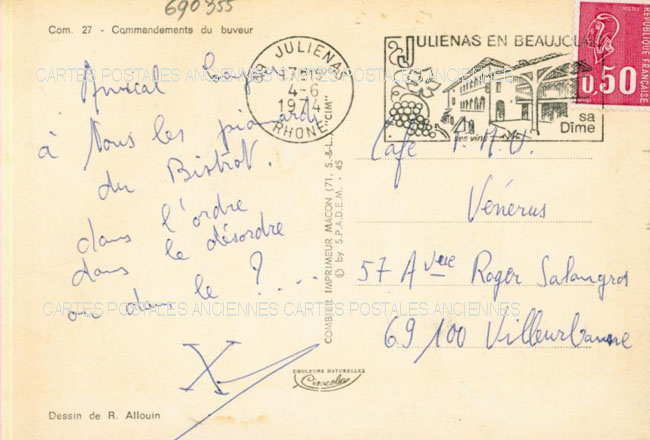 690355
Com. 27 - Commandements du buveur
Amical
à tous les pionards
du Bistrot.
dans l'ordre
dans le désordre
ou dans le ? ....
X
Dessin de R. Allouin
69 JULIENAS
17H15
4-6
1974
RHONE
JULIENAS EN BEAUJOLAIS
ses vins
sa
Dîme
REPUBLIQUE FRANÇAISE
0,50
COMBIER IMPRIMEUR MACON (71, S.-&-L. "CIM"
© by S.P.A.D.E.M. - 45
Café P.M.U.
Vénérus
57 Avue Roger Salangros
69100 Villeurbanne
COULEURS NATURELLES
CARTES POSTALES ANCIENNES CARTES POSTALES ANCIENNES
CARTES POSTALES ANCIENNES CARTES POSTALES ANCIENNES